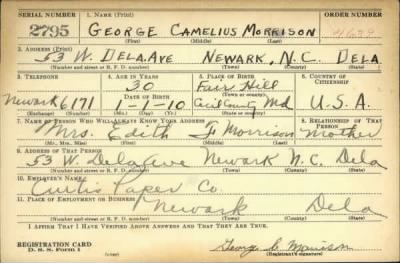 SERIAL NUMBER 1. NAME (Print) ORDER NUMBER
2795 GEORGE CAMELIUS MORRISON
(First) (Middle) (Last)
2. ADDRESS (Print)
53 W. DELA. AVE NEWARK, N.C. DELA
(Number and street or R. F. D. number) (Town) (County) (State)
3. TELEPHONE 4. AGE IN YEARS 5. PLACE OF BIRTH 6. COUNTRY OF CITIZENSHIP
30 Fair Hill
Newark 6171 DATE OF BIRTH Cecil County Md U.S.A.
1-1-10
(Exchange) (Number) (Mo.) (Day) (Yr.) (State or country)
7. NAME OF PERSON WHO WILL ALWAYS KNOW YOUR ADDRESS 8. RELATIONSHIP OF THAT PERSON
Mrs. Edith Morrison Mother
(Mr., Mrs., Miss) (First) (Middle) (Last)
9. ADDRESS OF THAT PERSON
53 W. Dela Ave Newark N.C. Dela
(Number and street or R. F. D. number) (Town) (County) (State)
10. EMPLOYER'S NAME
Curtis Paper Co.
11. PLACE OF EMPLOYMENT OR BUSINESS
Newark Dela
(Number and street or R. F. D. number) (Town) (County) (State)
I AFFIRM THAT I HAVE VERIFIED ABOVE ANSWERS AND THAT THEY ARE TRUE.
REGISTRATION CARD
D. S. S. Form 1
George C. Morrison
(Registrant's signature)